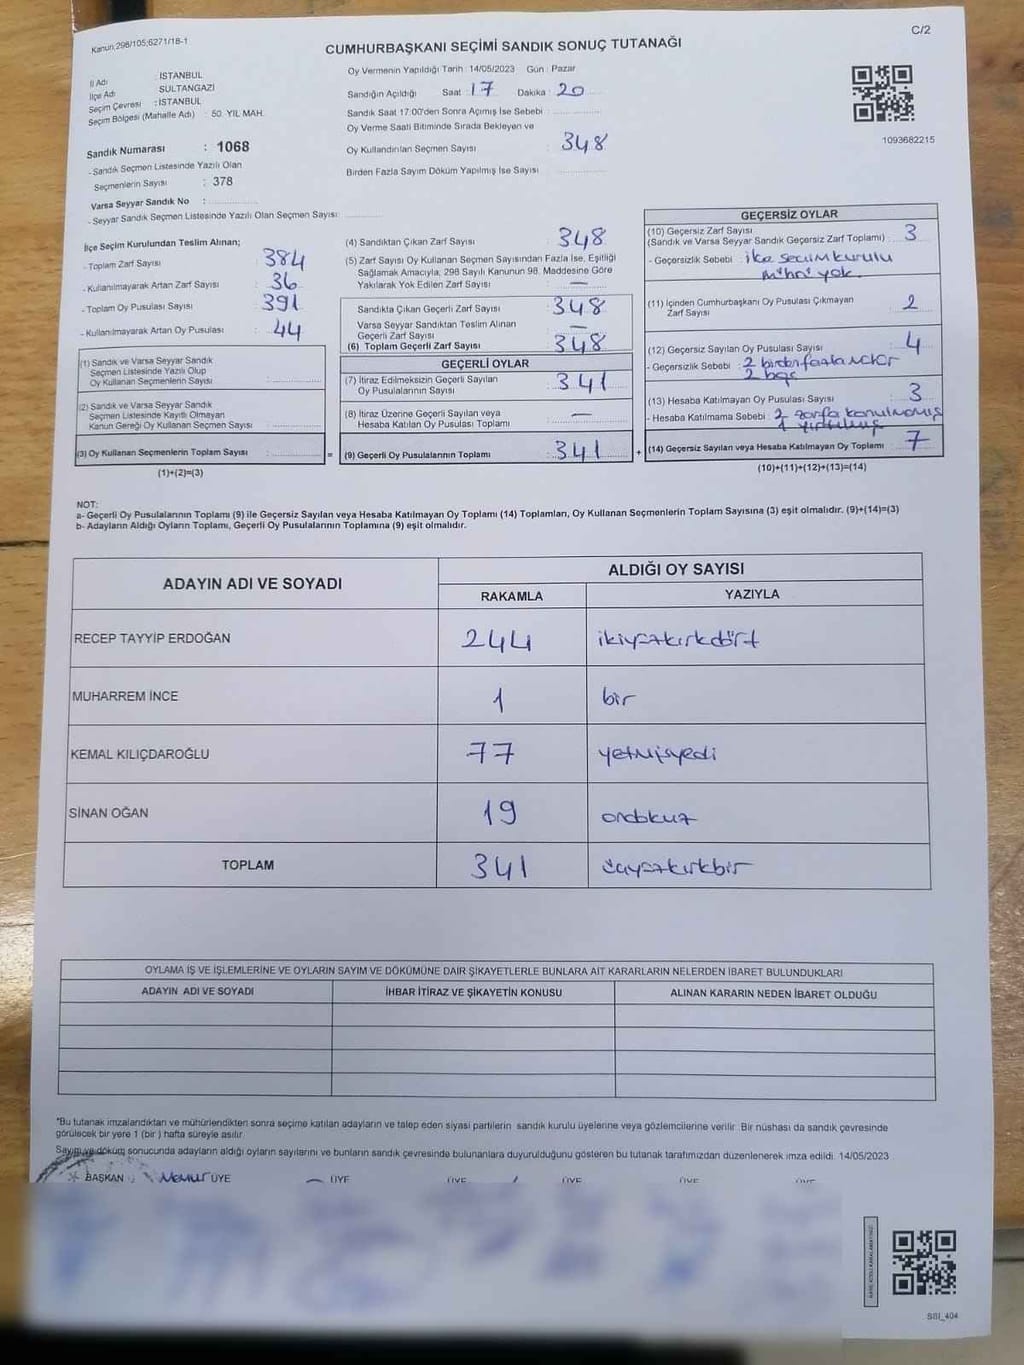 Kanun:298/105;6271/18-1
C/2
CUMHURBAŞKANI SEÇİMİ SANDIK SONUÇ TUTANAĞI
İl Adı : İSTANBUL
İlçe Adı SULTANGAZİ
Seçim Çevresi : İSTANBUL
Seçim Bölgesi (Mahalle Adı) : 50. YIL MAH.
Sandık Numarası : 1068
- Sandık Seçmen Listesinde Yazılı Olan
Seçmenlerin Sayısı : 378
Varsa Seyyar Sandık No :
- Seyyar Sandık Seçmen Listesinde Yazılı Olan Seçmen Sayısı:
Oy Vermenin Yapıldığı Tarih : 14/05/2023 Gün : Pazar
Sandığın Açıldığı Saat : 17 Dakika : 20
Sandık Saat 17:00'den Sonra Açımış İse Sebebi :
Oy Verme Saati Bitiminde Sırada Bekleyen ve
Oy Kullandırılan Seçmen Sayısı : 348
Birden Fazla Sayım Döküm Yapılmış İse Sayısı :
1093682215
İlçe Seçim Kurulundan Teslim Alınan;
- Toplam Zarf Sayısı : 384
- Kullanılmayarak Artan Zarf Sayısı : 36
- Toplam Oy Pusulası Sayısı : 391
- Kullanılmayarak Artan Oy Pusulası : 44
(1) Sandık ve Varsa Seyyar Sandık
Seçmen Listesinde Yazılı Olup
Oy Kullanan Seçmenlerin Sayısı :
(2) Sandık ve Varsa Seyyar Sandık
Seçmen Listesinde Kayıtlı Olmayan
Kanun Gereği Oy Kullanan Seçmen Sayısı :
(3) Oy Kullanan Seçmenlerin Toplam Sayısı : =
(1)+(2)=(3)
(4) Sandıktan Çıkan Zarf Sayısı : 348
(5) Zarf Sayısı Oy Kullanan Seçmen Sayısından Fazla İse, Eşitliği
Sağlamak Amacıyla, 298 Sayılı Kanunun 98. Maddesine Göre
Yakılarak Yok Edilen Zarf Sayısı : —
Sandıkta Çıkan Geçerli Zarf Sayısı : 348
Varsa Seyyar Sandıktan Teslim Alınan
Geçerli Zarf Sayısı : —
(6) Toplam Geçerli Zarf Sayısı : 348
GEÇERLİ OYLAR
(7) İtiraz Edilmeksizin Geçerli Sayılan
Oy Pusulalarının Sayısı : 341
(8) İtiraz Üzerine Geçerli Sayılan veya
Hesaba Katılan Oy Pusulası Toplamı : —
(9) Geçerli Oy Pusulalarının Toplamı : 341 +
GEÇERSİZ OYLAR
(10) Geçersiz Zarf Sayısı
(Sandık ve Varsa Seyyar Sandık Geçersiz Zarf Toplamı) : 3
- Geçersizlik Sebebi : ilçe seçim kurulu
mührü yok
(11) İçinden Cumhurbaşkanı Oy Pusulası Çıkmayan
Zarf Sayısı : 2
(12) Geçersiz Sayılan Oy Pusulası Sayısı : 4
- Geçersizlik Sebebi : 2 birden fazla
2 boş
(13) Hesaba Katılmayan Oy Pusulası Sayısı : 3
- Hesaba Katılmama Sebebi : 2 zarfa konulmamış
1 yırtılmış
(14) Geçersiz Sayılan veya Hesaba Katılmayan Oy Toplamı : 7
(10)+(11)+(12)+(13)=(14)
NOT:
a- Geçerli Oy Pusulalarının Toplamı (9) ile Geçersiz Sayılan veya Hesaba Katılmayan Oy Toplamı (14) Toplamları, Oy Kullanan Seçmenlerin Toplam Sayısına (3) eşit olmalıdır. (9)+(14)=(3)
b- Adayların Aldığı Oyların Toplamı, Geçerli Oy Pusulalarının Toplamına (9) eşit olmalıdır.
ADAYIN ADI VE SOYADI ALDIĞI OY SAYISI
RAKAMLA YAZIYLA
RECEP TAYYİP ERDOĞAN 244 ikiyüzkırkdört
MUHARREM İNCE 1 bir
KEMAL KILIÇDAROĞLU 77 yetmişyedi
SİNAN OĞAN 19 ondokuz
TOPLAM 341 üçyüzkırkbir
OYLAMA İŞ VE İŞLEMLERİNE VE OYLARIN SAYIM VE DÖKÜMÜNE DAİR ŞİKAYETLERLE BUNLARA AİT KARARLARIN NELERDEN İBARET BULUNDUKLARI
ADAYIN ADI VE SOYADI İHBAR İTİRAZ VE ŞİKAYETİN KONUSU ALINAN KARARIN NEDEN İBARET OLDUĞU
*Bu tutanak imzalandıktan ve mühürlendikten sonra seçime katılan adayların ve talep eden siyasi partilerin sandık kurulu üyelerine veya gözlemcilerine verilir. Bir nüshası da sandık çevresinde
görülecek bir yere 1 (bir ) hafta süreyle asılır.
Sayım ve döküm sonucunda adayların aldığı oyların sayılarını ve bunların sandık çevresinde bulunanlara duyurulduğunu gösteren bu tutanak tarafımızdan düzenlenerek imza edildi. 14/05/2023
BAŞKAN Memur ÜYE ÜYE ÜYE ÜYE ÜYE ÜYE
SSI_404